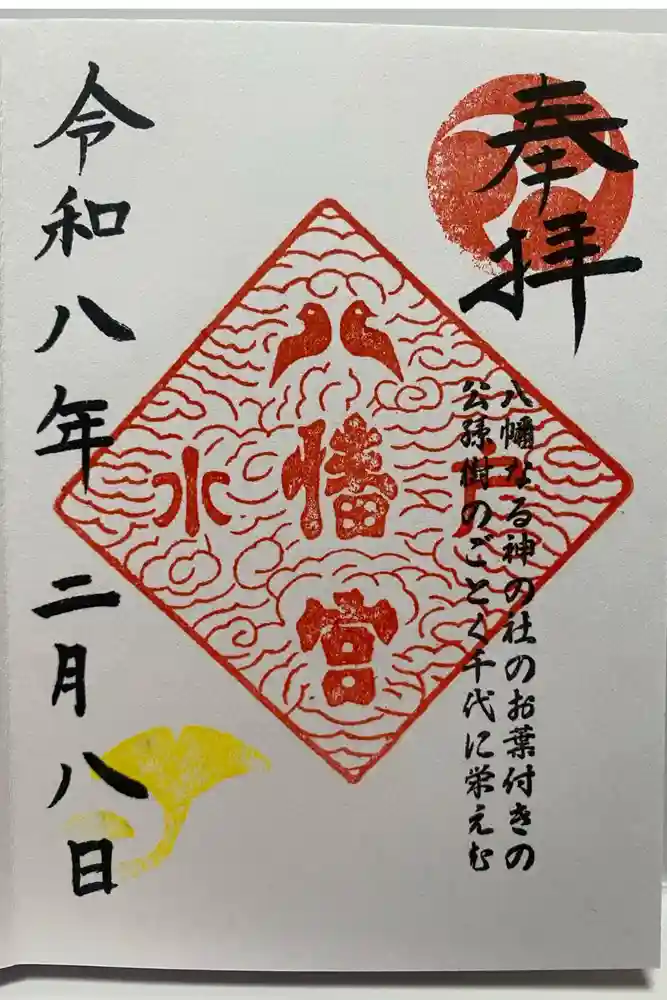 奉拝
八幡なる神の社のお葉付きの
公孫樹のごとく千代に栄えむ
水戸
八幡宮
令和八年二月八日